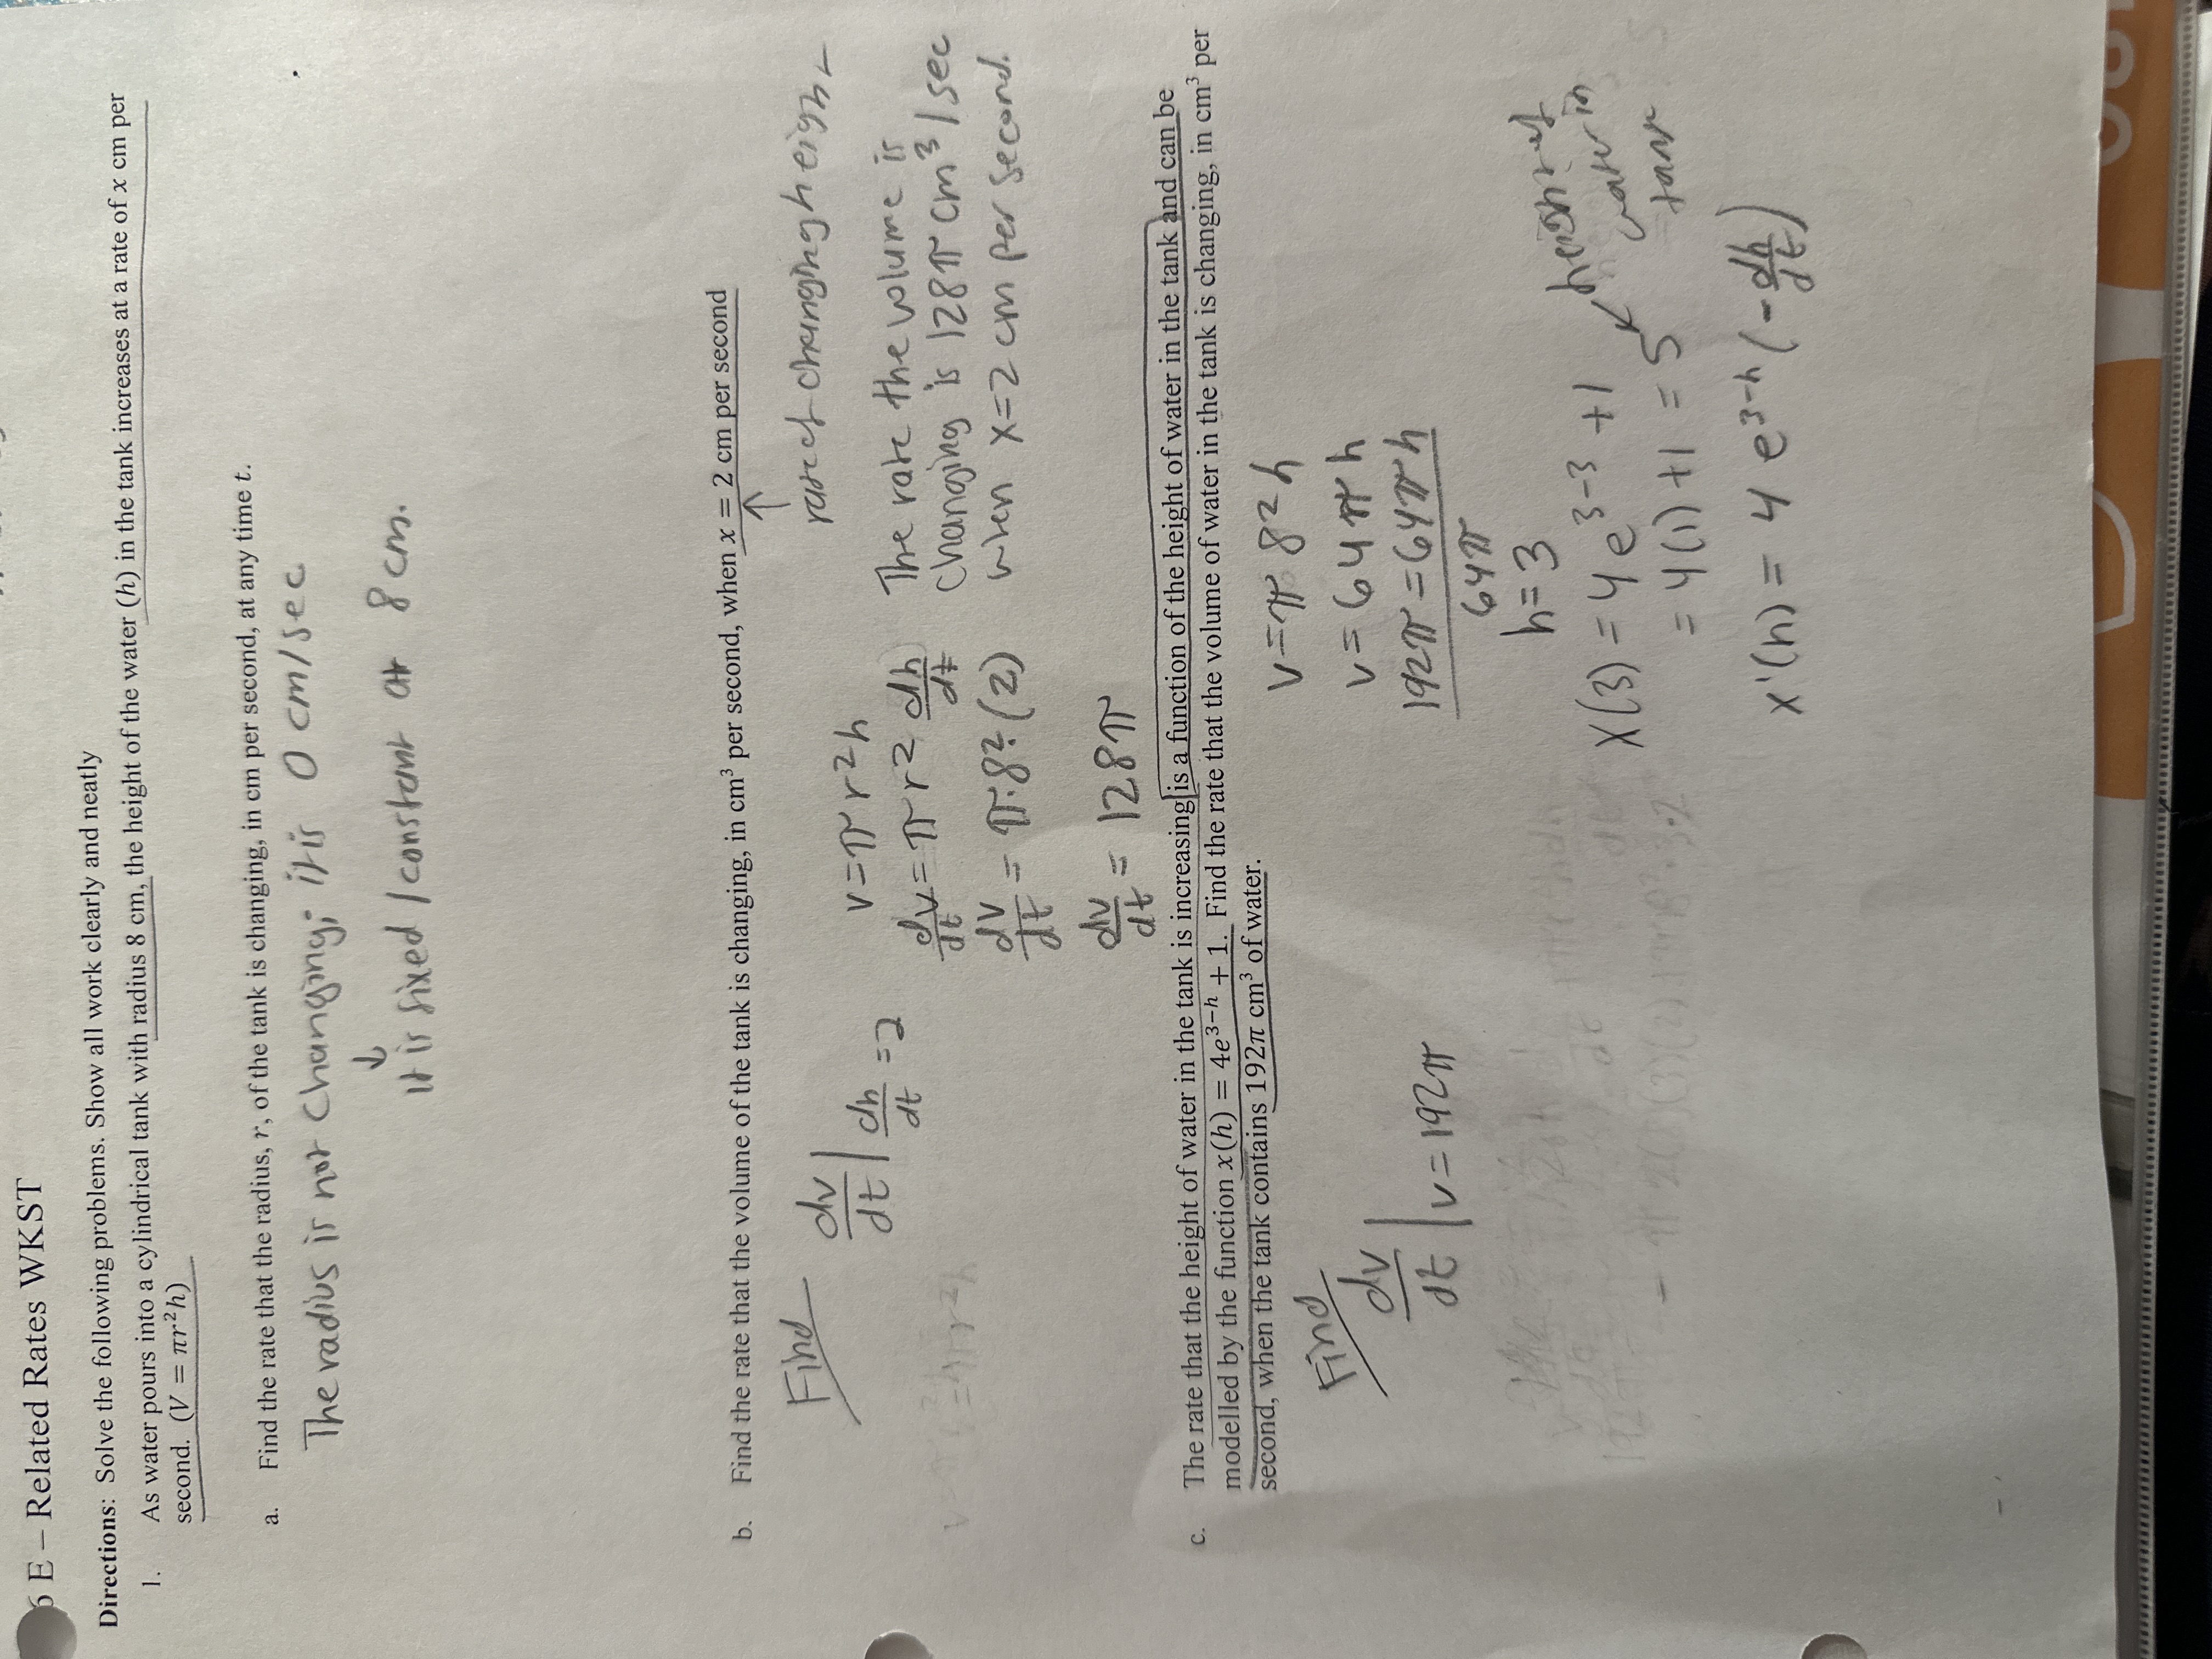 6 E – Related Rates WKST
Directions: Solve the following problems. Show all work clearly and neatly
1. As water pours into a cylindrical tank with radius 8 cm, the height of the water (h) in the tank increases at a rate of x cm per
second. (V = πr²h)
a. Find the rate that the radius, r, of the tank is changing, in cm per second, at any time t.
The radius is not changing; it is 0 cm/sec
↓
it is fixed / constant at 8 cm.
b. Find the rate that the volume of the tank is changing, in cm³ per second, when x = 2 cm per second
↑
rate of changing heigh
Find
dv/dt | dh/dt = 2
v = πr²h
dv/dt = πr² dh/dt
dv/dt = π·8²·(2)
dv/dt = 128π
The rate the volume is
changing is 128π cm³/sec
when x=2 cm per second.
c. The rate that the height of water in the tank is increasing is a function of the height of water in the tank and can be
modelled by the function x(h) = 4e³⁻ʰ + 1. Find the rate that the volume of water in the tank is changing, in cm³ per
second, when the tank contains 192π cm³ of water.
Find
dv/dt | v=192π
v = π 8² h
v = 64πh
192π = 64πh
64π
h=3
x(3) = 4e³⁻³ +1
= 4(1) +1 = 5
height of
water in
tank
x'(h) = 4 e³⁻ʰ (-dh/dt)